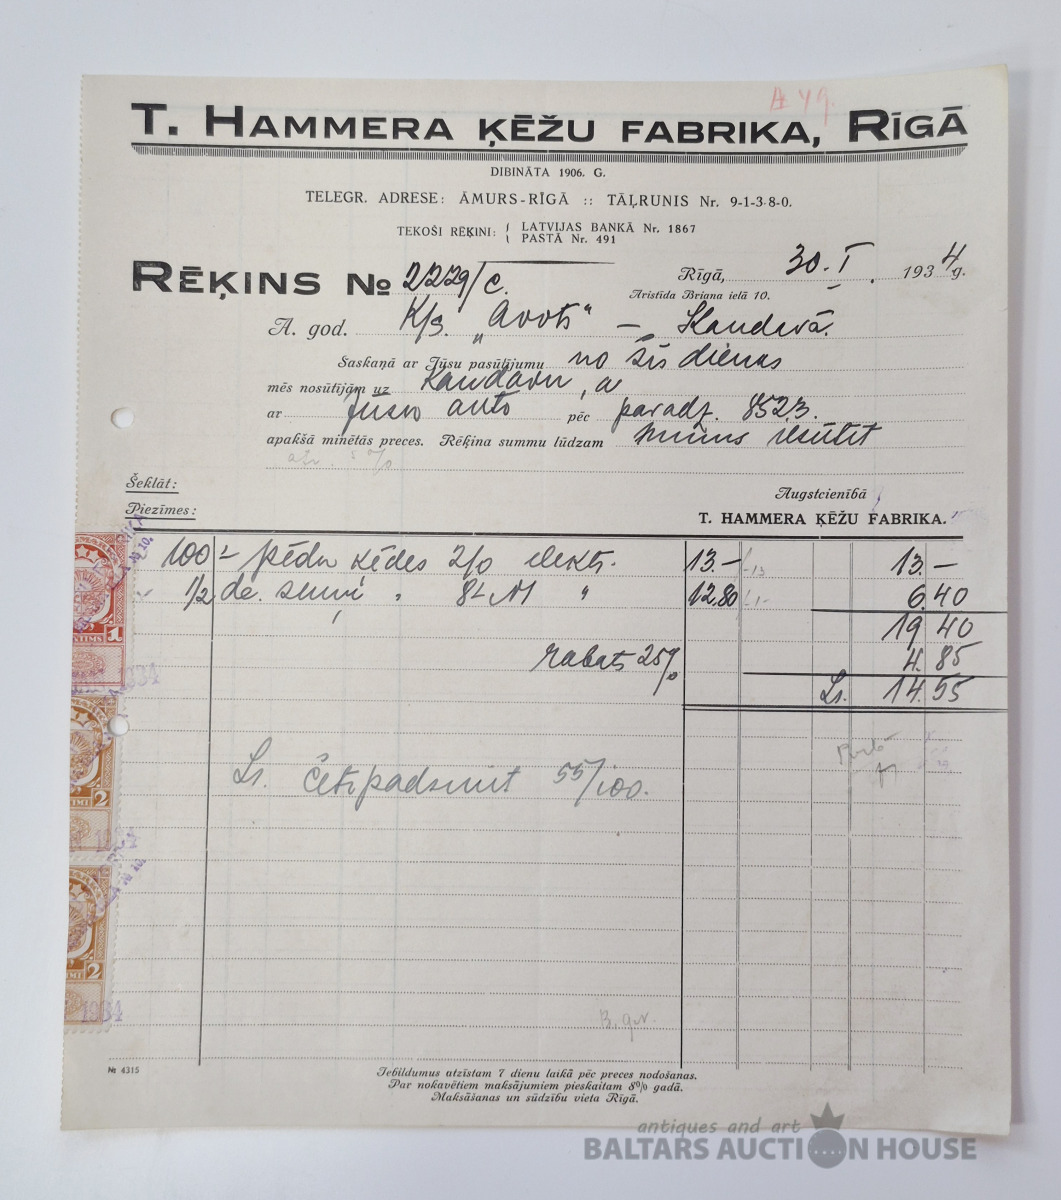 T. HAMMERA ĶĒŽU FABRIKA, RĪGĀ
DIBINĀTA 1906. G.
TELEGR. ADRESE: ĀMURS-RĪGĀ :: TĀĻRUNIS Nr. 9-1-3-8-0.
TEKOŠI RĒĶINI: LATVIJAS BANKĀ Nr. 1867
PASTĀ Nr. 491
RĒĶINS № 2229/c. Rīgā, 30. I. 1934 g.
Aristīda Briana ielā 10.
A. god. K/s. „Avots“ – Kandavā.
Saskaņā ar Jūsu pasūtījumu no šīs dienas
mēs nosūtījām uz Kandavu, a
ar Jūsu auto pēc paradz. 8523.
apakšā minētās preces. Rēķina summu lūdzam mums iesūtīt
Šeklāt:
Piezīmes:
Augstcienībā
T. HAMMERA ĶĒŽU FABRIKA.
100 – pēdu ķēdes 2/0 elektr. 13.– 13.–
1/2 " 12,80 6.40
19 40
rabats 25% 4.85
Ls. 14.55
Ls. četrpadsmit 55/100.
1
2
2
1934
№ 4315
Iebildumus atzīstam 7 dienu laikā pēc preces nodošanas.
Par nokavētiem maksājumiem pieskaitam 8% gadā.
Maksāšanas un sūdzību vieta Rīgā.
antiques and art
BALTARS AUCTION HOUSE